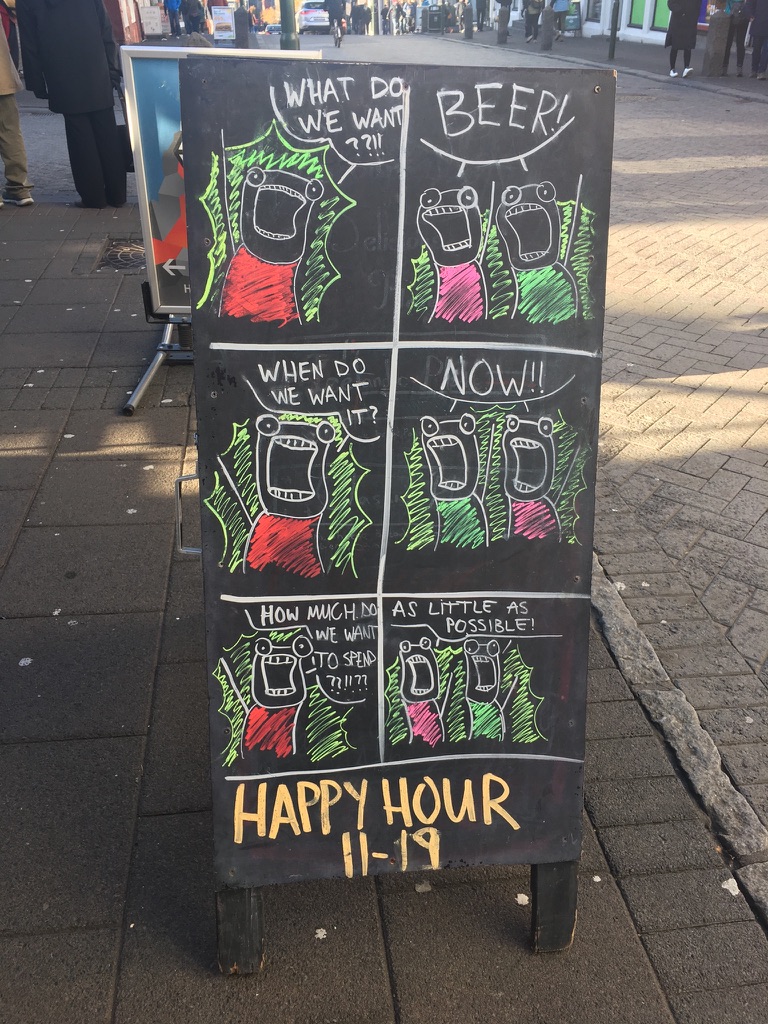 WHAT DO
WE WANT
??!!
BEER!
WHEN DO
WE WANT
IT?
NOW!!
HOW MUCH DO
WE WANT
TO SPEND
??!!??
AS LITTLE AS
POSSIBLE!
HAPPY HOUR
11-19